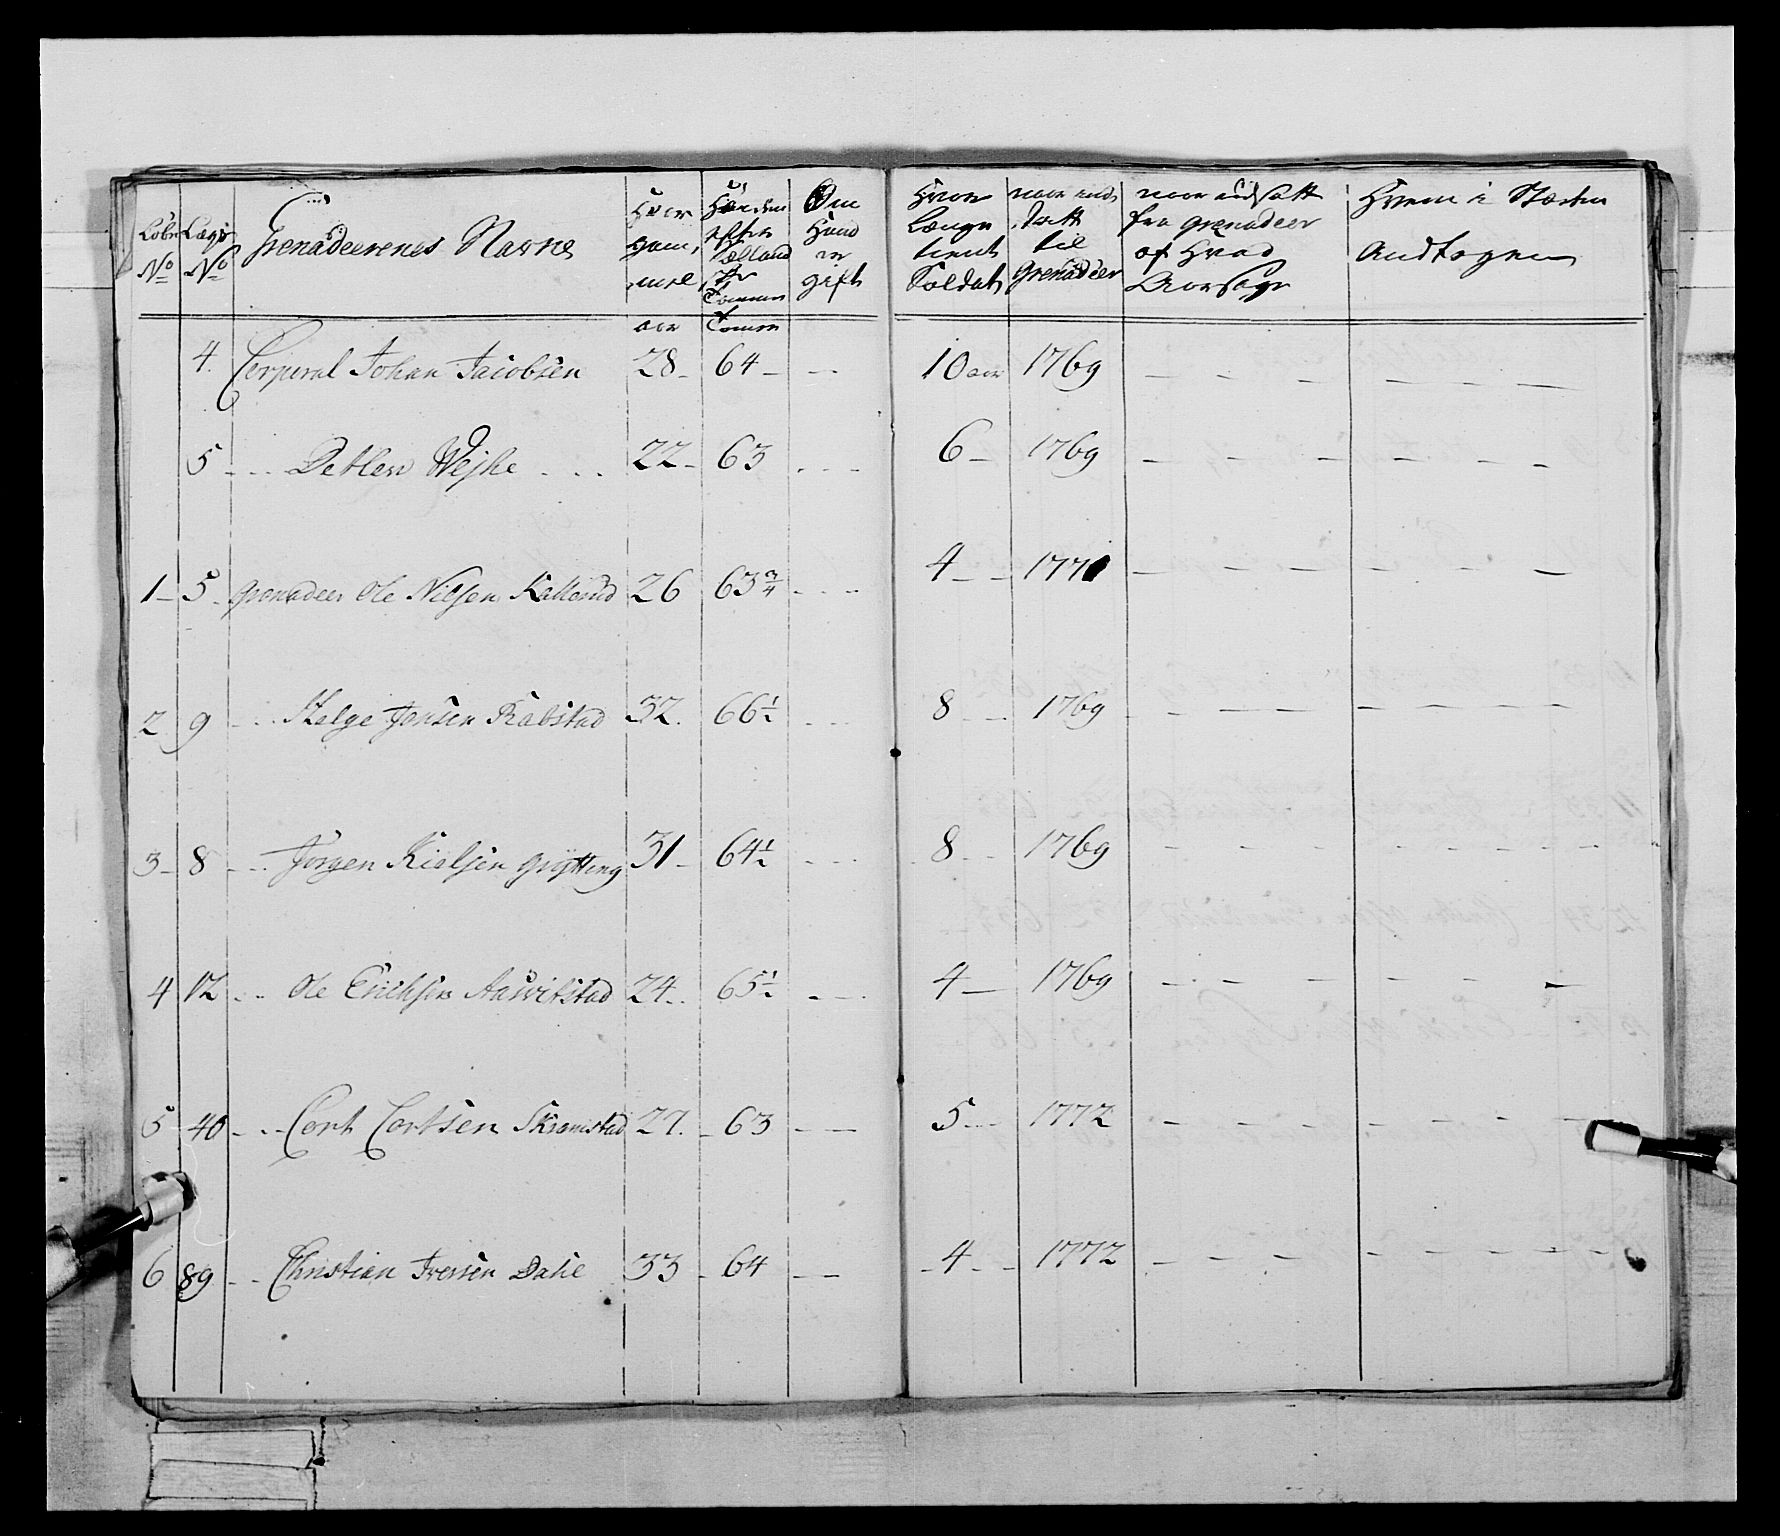 Löbe No | Lægs No | Grenadeerenes Navne | Hvor gam, mel | Höyden efter Siælland ske Tommer | Om Hand er gift | Hvor Længe tient Soldat | naar ind, satt til Grenadeer | naar udsatt fra grenadeer af Hvad Aarsage | Hvem i Stæden Andtagen
aar | Tomer
4. Corporal Johan Jacobsen 28 64 10 aar 1769
5 Detlew Wejhe 22 63 6 1769
1 5 grenadeer Ole Nilsen 26 63 3/4 4 1771
2 9 Helge Jonsen Rabstad 32. 66 1/2 8 1769
3 8 Jörgen Kielsen Grytting 31 64 1/2 8 1769
4 12 Ole Erichsen 24 65 1/2 4 1769
5 40 Cort Cortsen Skramstad 27. 63 5 1772
6 89 Christian Iversen Dahl 33 64 4 1772